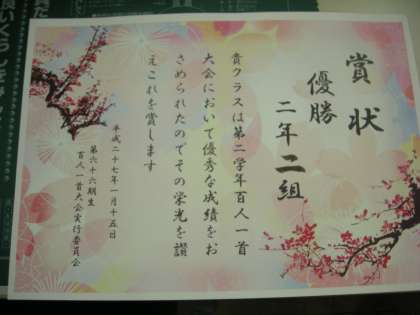 賞状
優勝
二年二組
貴クラスは第二学年百人一首
大会において優秀な成績をお
さめられたのでその栄光を讃
えこれを賞します
平成二十七年一月十五日
第六十六期生
百人一首大会実行委員会